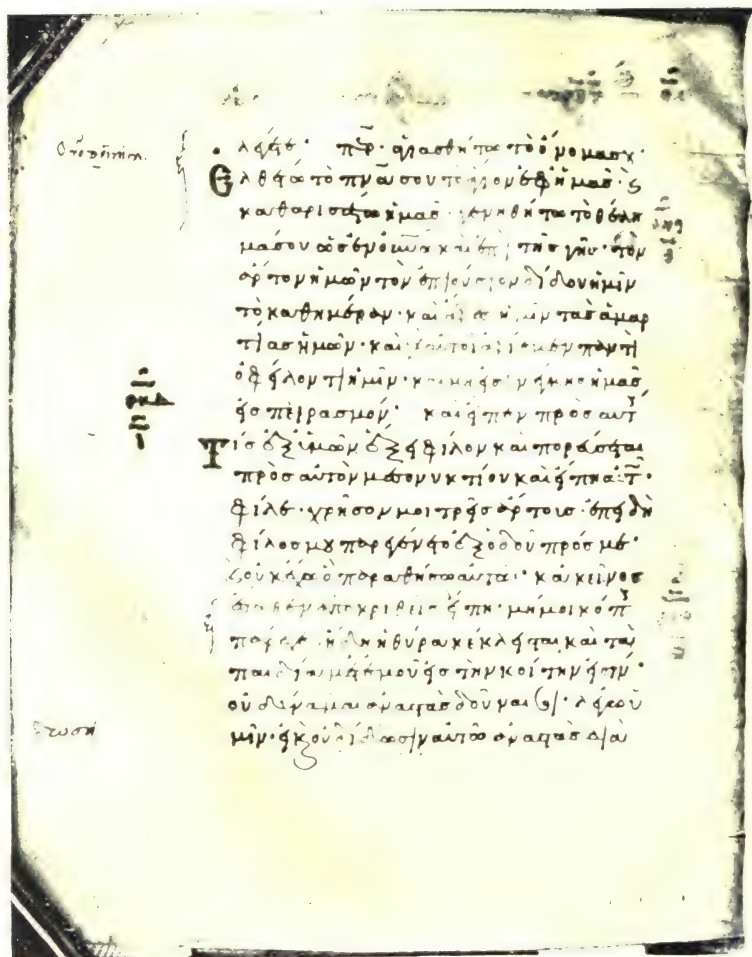 λέγετε· πε̅ρ· ἁγιασθήτω τὸ ὄνομά σου·
Ἐλθέτω τὸ πν̅α σου τὸ ἅγιον ἐφ ἡμᾶς· ϗ
καθαρισάτω ἡμᾶς· γενηθήτω τὸ θέλη
μα σου ὡς ἐν οὐ̅νω καὶ ἐπὶ τῆς γῆς· τὸν
ἄρτον ἡμῶν τὸν ἐπιούσιον δίδου ἡμῖν
τὸ καθημέραν· καὶ ἄφες ἡμῖν τὰς ἁμαρ
τίας ἡμῶν· καὶ αὐτοὶ ἀφίεμεν παντὶ
ὀφείλοντι ἡμῖν· καὶ μὴ εἰσενέγκης ἡμᾶς
εἰς πειρασμόν· καὶ εἶπεν πρὸς αὐτ
ρκδ
Τίς ἐξ ὑμῶν ἕξει φίλον καὶ πορεύσεται
πρὸς αὐτὸν μεσονυκτίου καὶ εἴπη
φίλε· χρῆσον μοι τρεῖς ἄρτους· ἐπειδὴ
φίλος μου παρεγένετο ἐξ ὁδοῦ πρός με·
ϗ οὐκ ἔχω ὃ παραθήσω αὐτῶ· κακεῖνος
ἔσωθεν ἀποκριθεὶς εἴπη· μή μοι κόπ
πάρεχε· ἤδη ἡ θύρα κέκλεισται καὶ τὰ
παιδία μετ ἐμοῦ εἰς τὴν κοίτην εἰσίν·
οὐ δύναμαι ἀναστὰς δοῦναι σοι· λέγω ὑ
μῖν· εἰ καὶ οὐ δώσει αὐτῶ ἀναστὰς διὰ